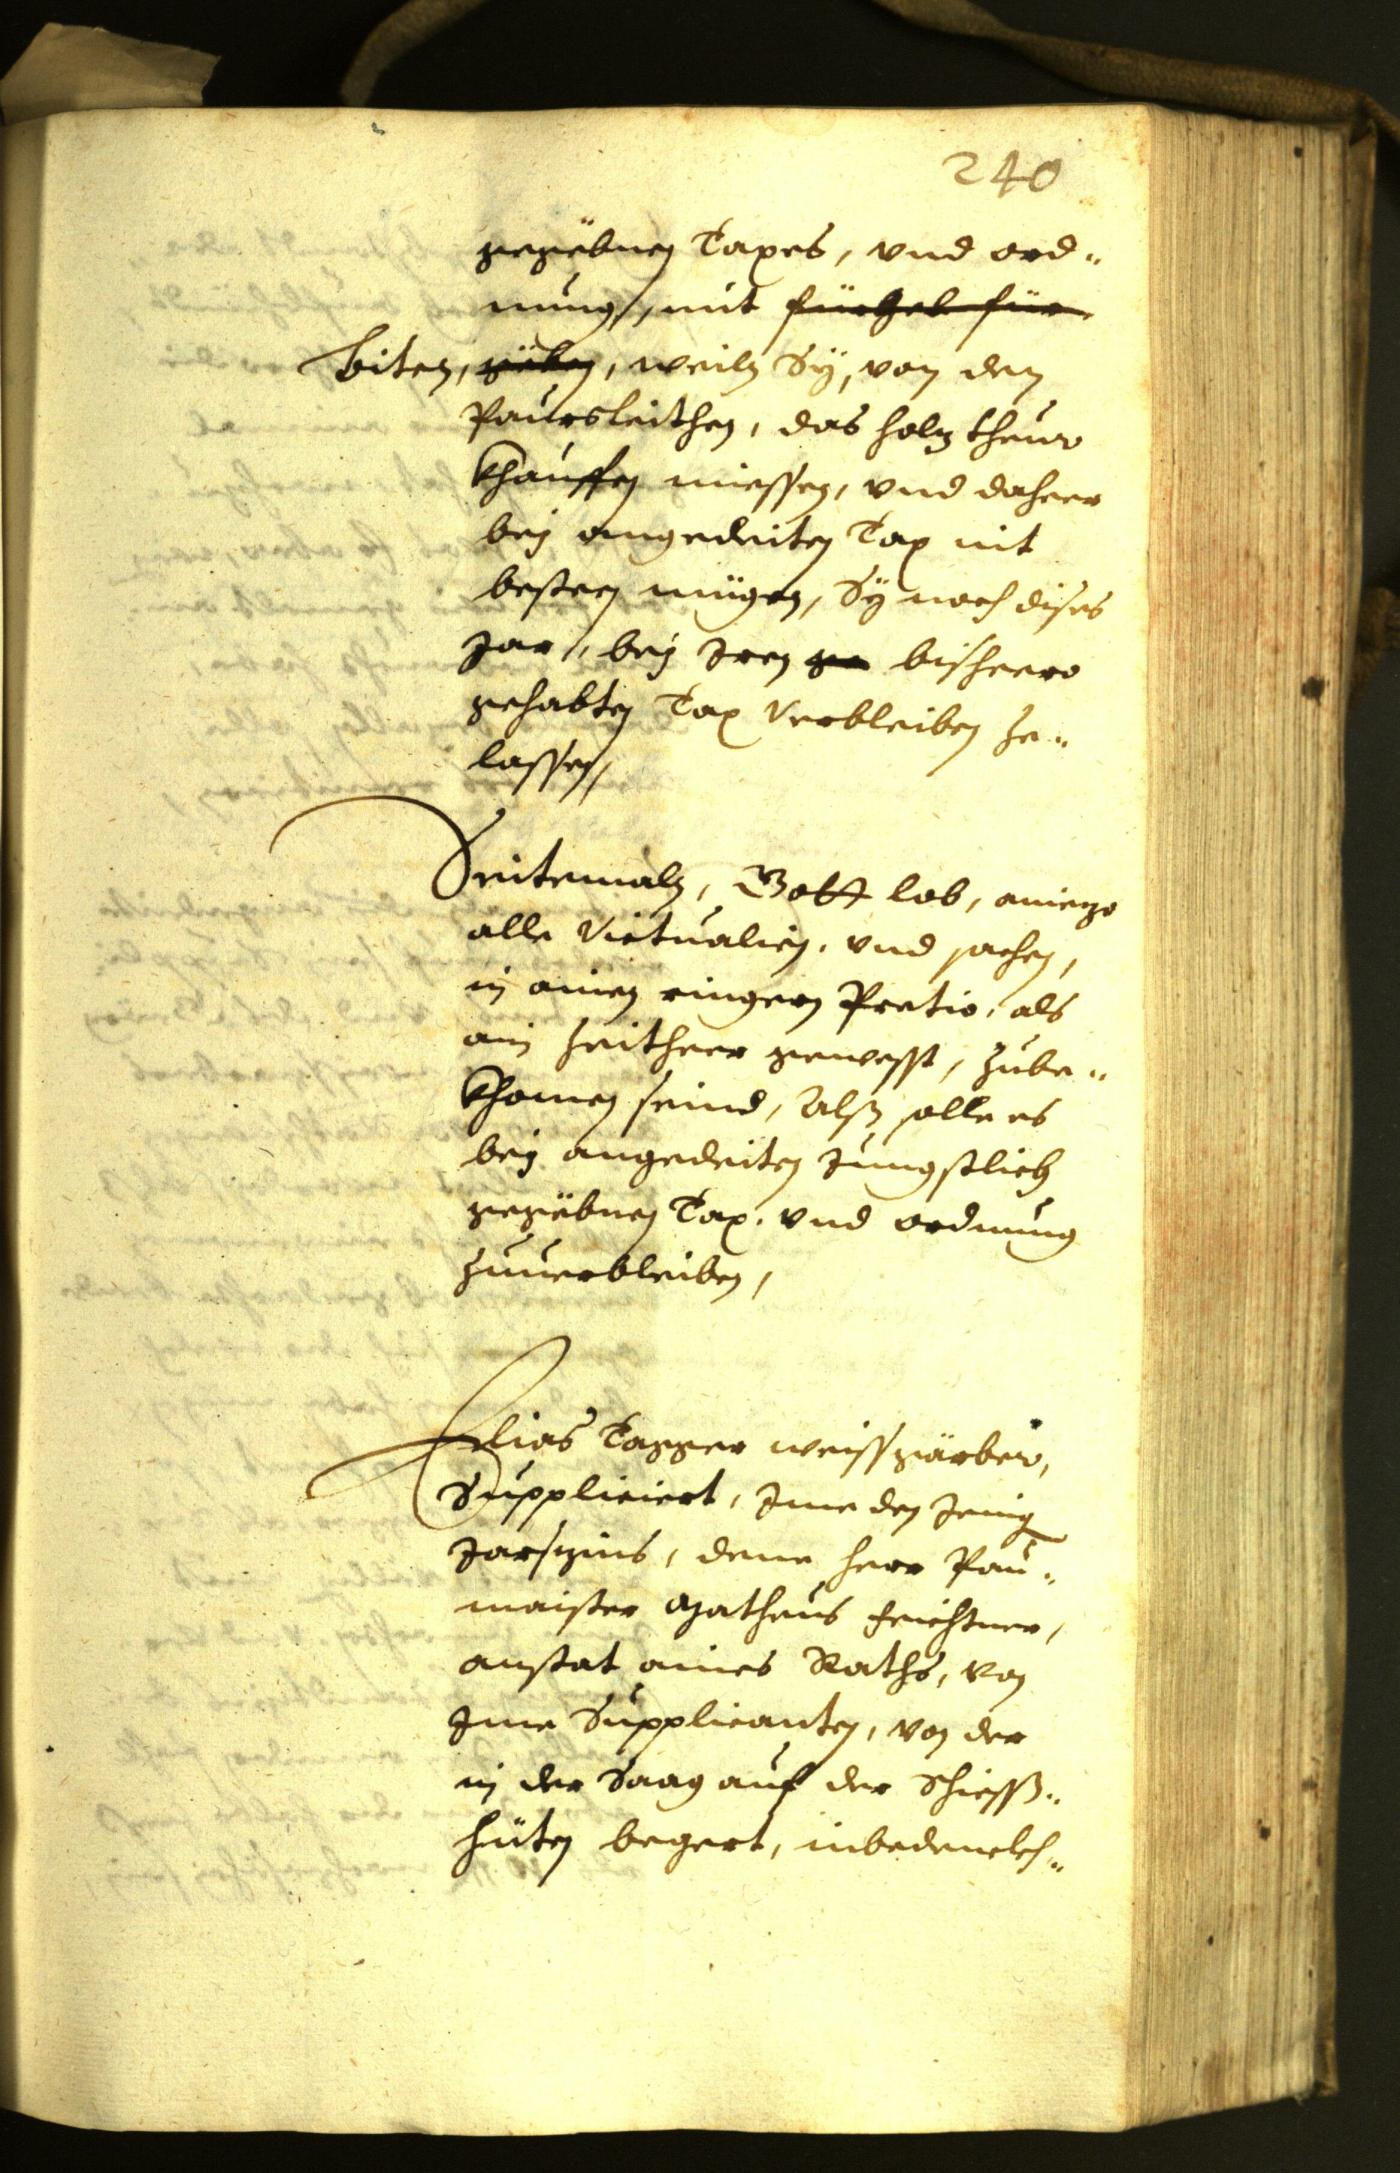 240
gegëbnen Taxes, vnd ord¬
nung, mit fürhal für
biten, gëben, weiln Sÿ, von den
Paursleithen, das holz theur
khauffen miessen, vnd daheer
bej angedeiten Tax nit
besteen mügen, Sÿ noch dises
Jar, bej Iren ge bisheero
gehabten Tax Verbleiben ze¬
lassen,
Seitemaln, Gott lob, aniezo
alle Victualien, vnd sachen,
in ainen ringern Pretio, als
ain Zeitheer gewesst, zube¬
khomen seind, Alß solle es
bej angedeiten Jüngstlich
gegëbnen Tax, vnd ordnung
zuuerbleiben,
Elias Tagger weissgärber,
Suppliciert, Ime den Jenig
Jarszins, dene herr Pau¬
maister Matheus Feichtner,
anstat aines Raths, von
Ime Supplicanten, von der
in der Saag auf der Schiesß¬
hüten begert, inbedenckh¬